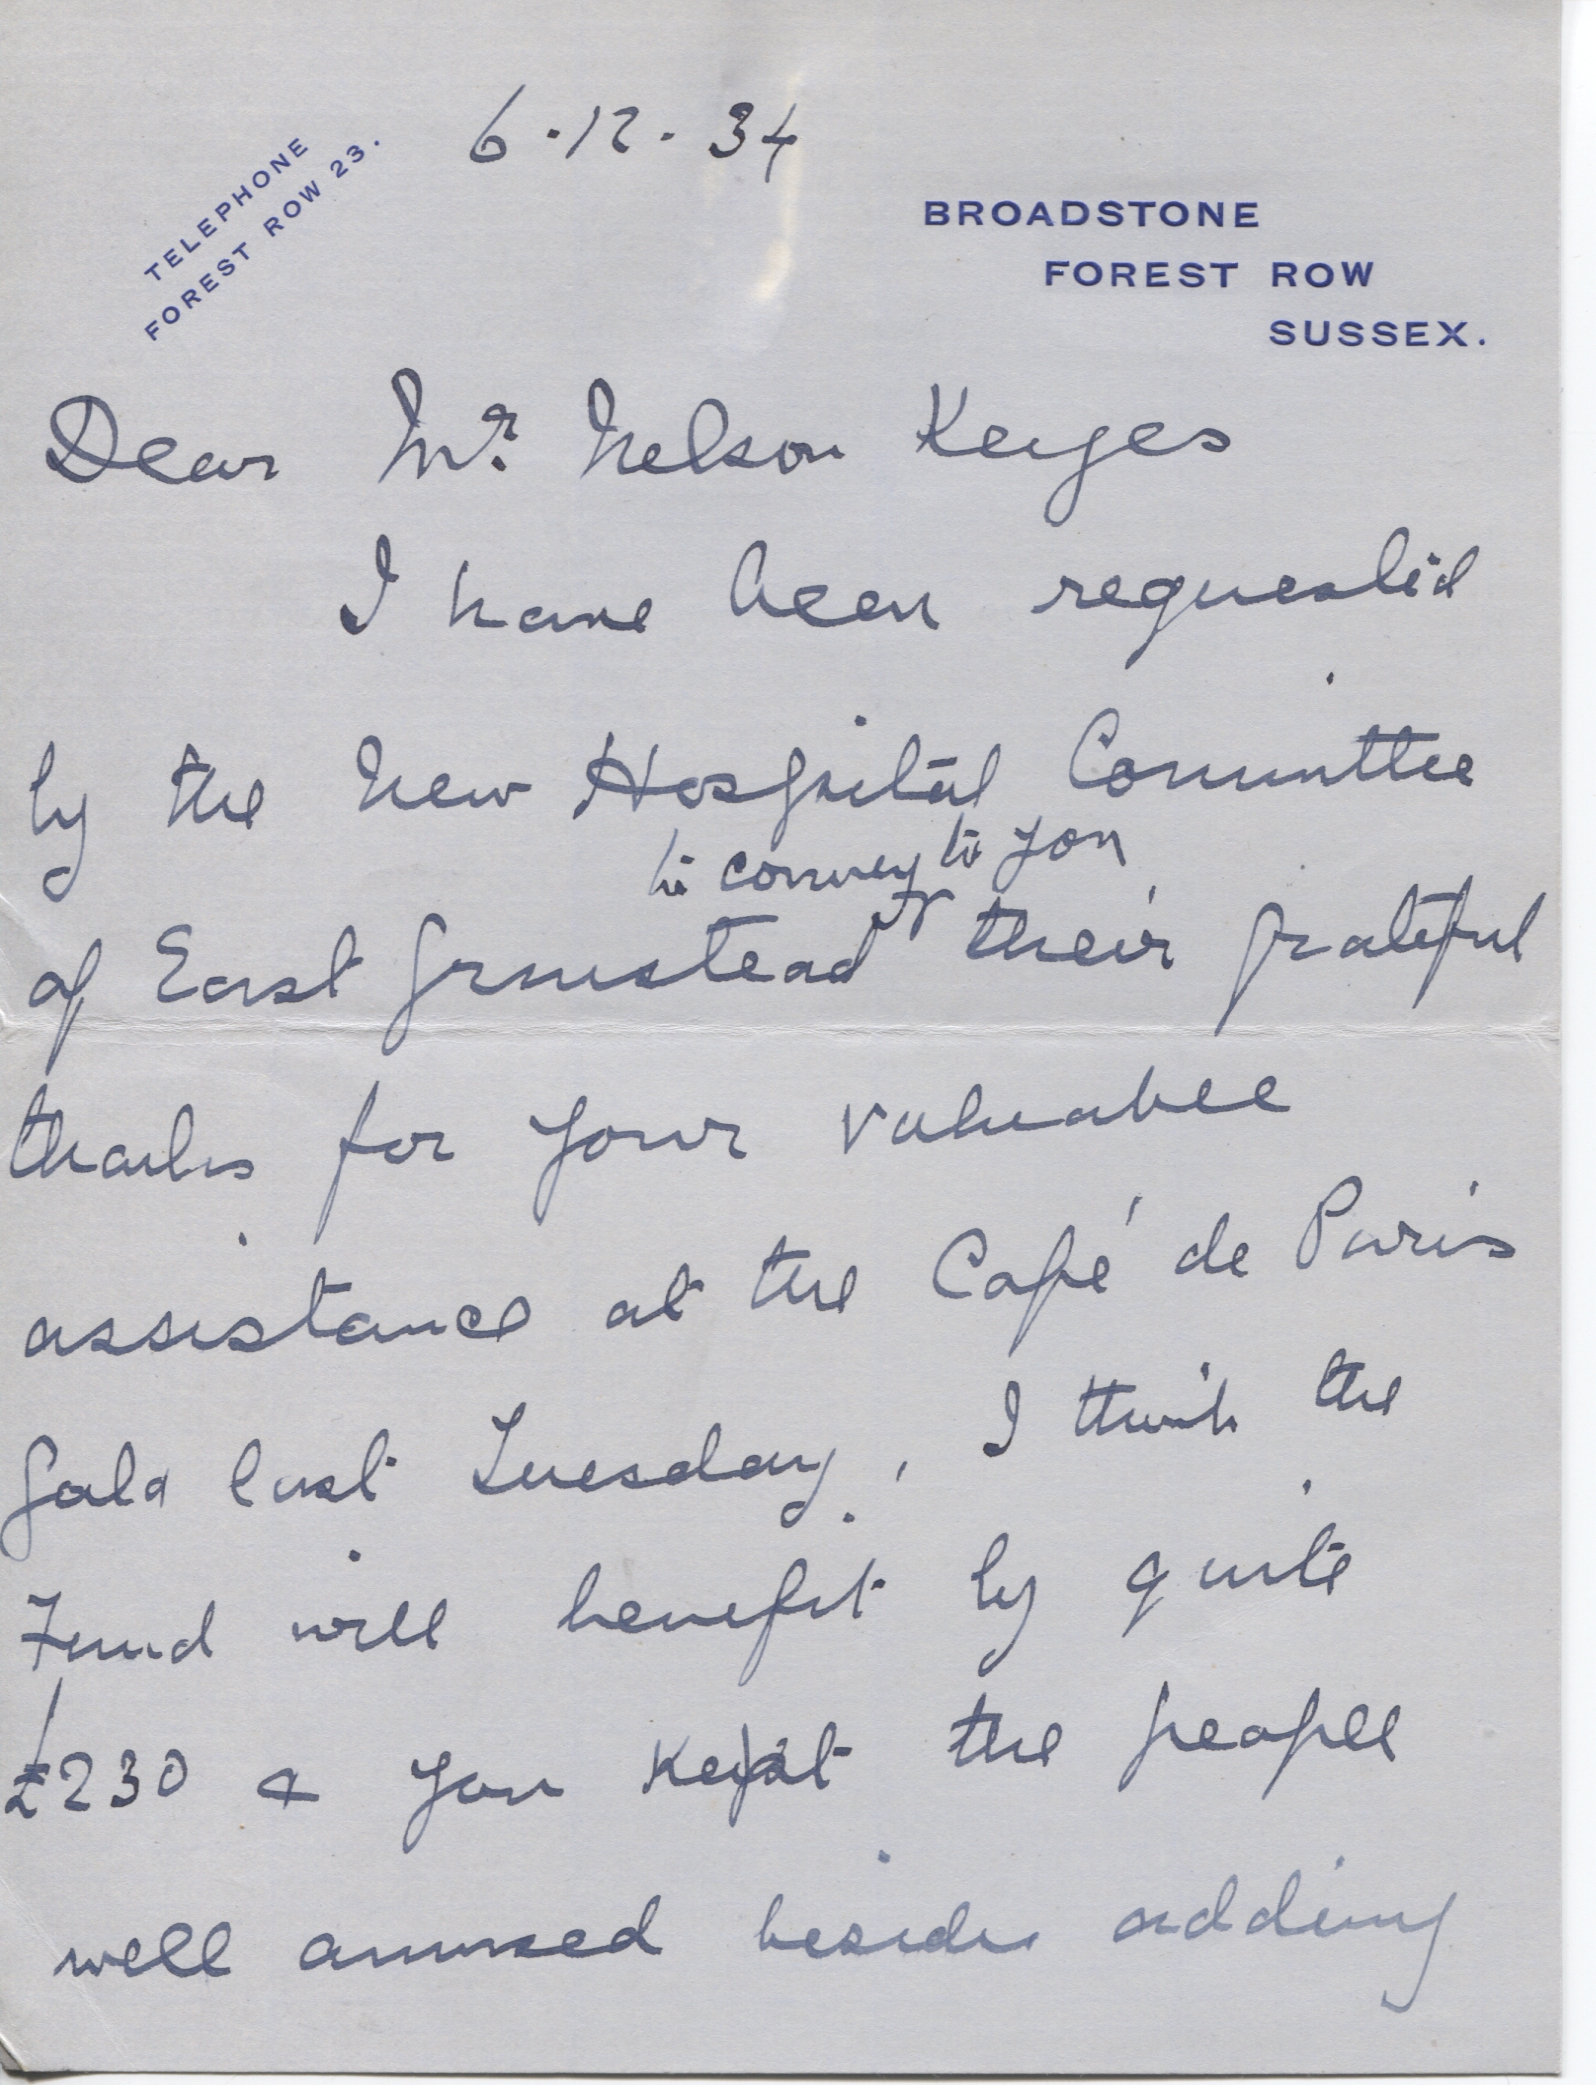 6.12.34
TELEPHONE
FOREST ROW 23.
BROADSTONE
FOREST ROW
SUSSEX.
Dear Mr. Nelson Keyes
I have been requested
by the New Hospital Committee
to convey to you
of East Grinstead their grateful
thanks for your valuable
assistance at the Café de Paris
Gala last Tuesday. I think the
Fund will benefit by quite
£230 & you kept the people
well amused besides adding